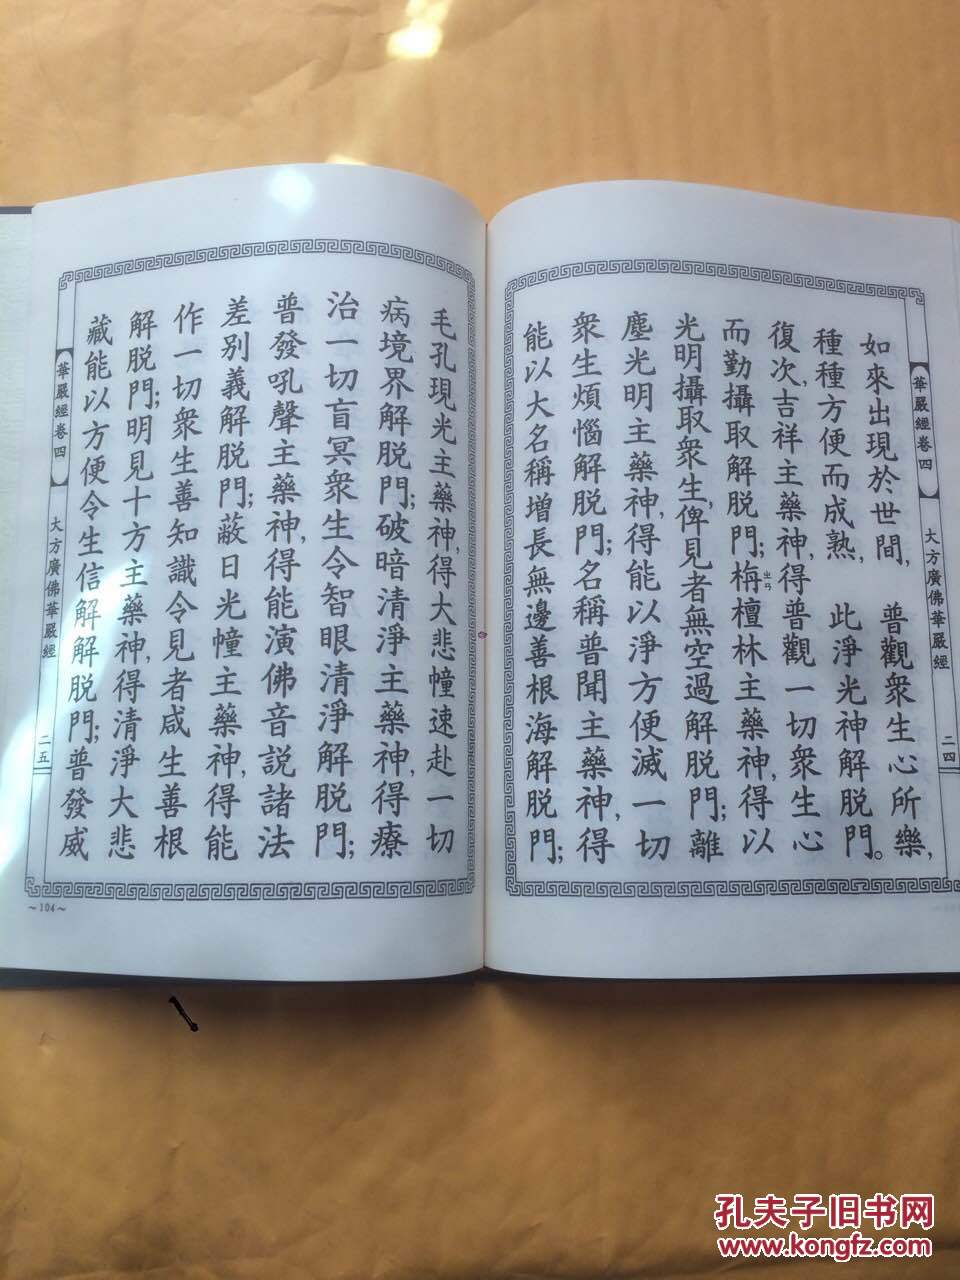 華嚴經卷四　大方廣佛華嚴經　二四
如來出現於世間，　普觀衆生心所樂，
種種方便而成熟，　此淨光神解脱門。
復次，吉祥主藥神，得普觀一切衆生心
而勤攝取解脱門；栴檀林主藥神，得以
ㄓㄢ
光明攝取衆生，俾見者無空過解脱門；離
塵光明主藥神，得能以淨方便滅一切
衆生煩惱解脱門；名稱普聞主藥神，得
能以大名稱增長無邊善根海解脱門；
毛孔現光主藥神，得大悲幢速赴一切
病境界解脱門；破暗清淨主藥神，得療
治一切盲冥衆生令智眼清淨解脱門；
普發吼聲主藥神，得能演佛音説諸法
差別義解脱門；蔽日光幢主藥神，得能
作一切衆生善知識令見者咸生善根
解脱門；明見十方主藥神，得清淨大悲
藏能以方便令生信解解脱門；普發威
華嚴經卷四　大方廣佛華嚴經　二五
~104~
孔夫子旧书网
www.kongfz.com